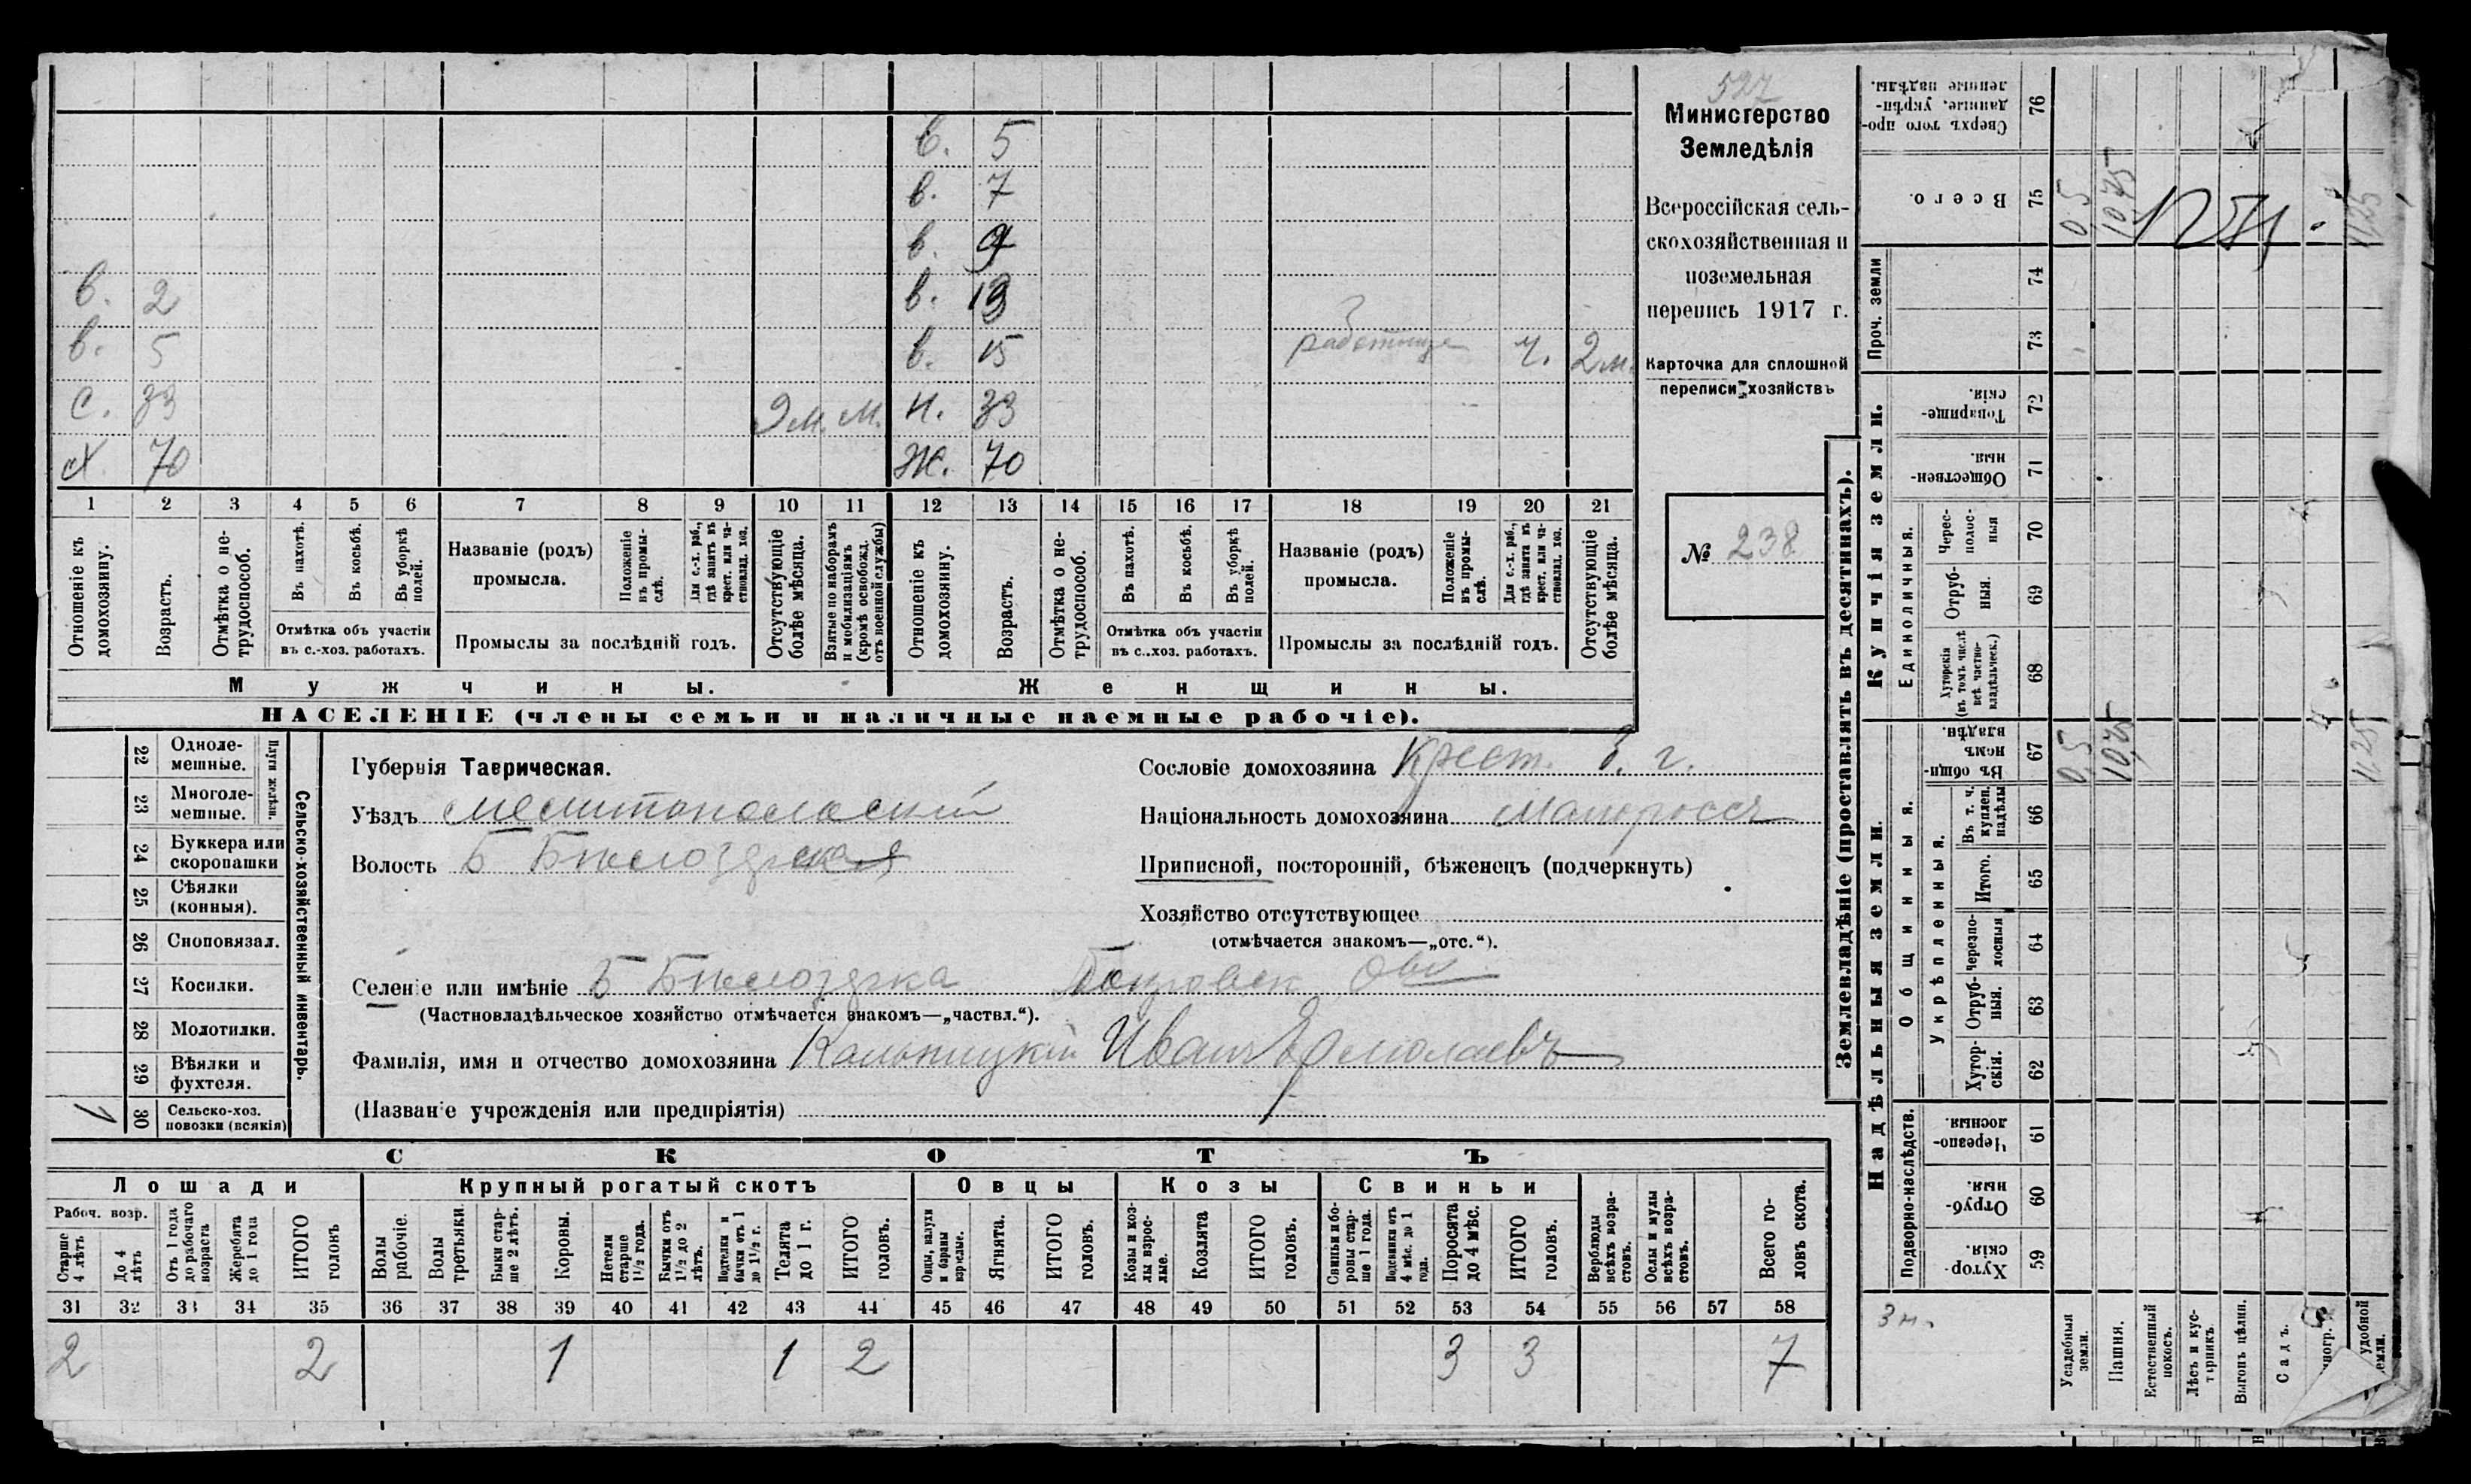 в. 5
в. 7
в. 9
в. 2 в. 13
в. 5 в. 15 работница ч. 2 м.
с. 33 м. н. 33
х 70 ж. 70
1 2 3 4 5 6 7 8 9 10 11 12 13 14 15 16 17 18 19 20 21
Отношеніе къ домохозяину.
Возрастъ.
Отмѣтка о нетрудоспособ.
Въ пахотѣ.
Въ косьбѣ.
Въ уборкѣ полей.
Отмѣтка объ участіи въ с.-хоз. работахъ.
Названіе (родъ) промысла.
Положеніе въ промыслѣ.
Для с.-х. раб., гдѣ занятъ въ крест. или частновлад. хоз.
Промыслы за послѣдній годъ.
Отсутствующіе болѣе мѣсяца.
Взятые по наборамъ и мобилизаціямъ (кромѣ освобожд. отъ военной службы)
Отношеніе къ домохозяину.
Возрастъ.
Отмѣтка о нетрудоспособ.
Въ пахотѣ.
Въ косьбѣ.
Въ уборкѣ полей.
Отмѣтка объ участіи въ с..хоз. работахъ.
Названіе (родъ) промысла.
Положеніе въ промыслѣ.
Для с.-х. раб., гдѣ занята въ крест. или частновлад. хоз.
Промыслы за послѣдній годъ.
Отсутствующіе болѣе мѣсяца.
Мужчины. Женщины.
НАСЕЛЕНІЕ (члены семьи и наличные наемные рабочіе).
527
Министерство
Земледѣлія
Всероссійская сель-
скохозяйственная и
поземельная
перепись 1917 г.
Карточка для сплошной
переписи хозяйствъ
№ 238
Сельско-хозяйственный инвентарь.
Плуги желѣзн.
22 Одноле-мешные.
23 Многоле-мешные.
24 Буккера или скоропашки
25 Сѣялки (конныя).
26 Сноповязал.
27 Косилки.
28 Молотилки.
29 Вѣялки и фухтеля.
30 Сельско-хоз. повозки (всякія)
1
Губернія Таврическая.
Уѣздъ Мелитопольскій
Волость Б Бѣлозерская
Сословіе домохозяина Крест. б. г.
Національность домохозяина Малороссъ
Приписной, посторонній, бѣженецъ (подчеркнуть)
Хозяйство отсутствующее
(отмѣчается знакомъ—„отс.“).
Селеніе или имѣніе Б Бѣлозерка Покровск. Общ
(Частновладѣльческое хозяйство отмѣчается знакомъ—„частвл.“).
Фамилія, имя и отчество домохозяина Кальницкій Иванъ Ермолаевъ
(Названіе учрежденія или предпріятія)
СКОТЪ
Лошади Крупный рогатый скотъ Овцы Козы Свиньи
Рабоч. возр.
Старше 4 лѣтъ
До 4 лѣтъ
Отъ 1 года до рабочаго возраста
Жеребята до 1 года
ИТОГО головъ
Волы рабочіе.
Волы третьяки.
Быки старше 2 лѣтъ.
Коровы.
Нетели старше 1½ года.
Бычки отъ 1½ до 2 лѣтъ.
Подтелки и бычки отъ 1 до 1½ г.
Телята до 1 г.
ИТОГО головъ.
Овцы, валухи и бараны взрослые.
Ягнята.
ИТОГО головъ.
Козы и козлы взрослые.
Козлята
ИТОГО головъ.
Свиньи и боровы старше 1 года.
Подсвинки отъ 4 мѣс. до 1 года.
Поросята до 4 мѣс.
ИТОГО головъ.
Верблюды всѣхъ возрастовъ.
Ослы и мулы всѣхъ возрастовъ.
Всего головъ скота.
31 32 33 34 35 36 37 38 39 40 41 42 43 44 45 46 47 48 49 50 51 52 53 54 55 56 57 58
2 2 1 1 2 3 3 7
Землевладѣніе (проставлять въ десятинахъ).
Купчія земли.
Надѣльныя земли.
Сверхъ того проданные, укрѣпленные надѣлы. 76
Всего. 75 0,5 10,75 11,25
Проч. земли 74 73
Товарищескія. 72
Общественныя. 71
Единоличныя.
Чересполосныя 70
Отрубныя. 69
Хуторскія (въ томъ числѣ всѣ частновладѣльческ.) 68
Общинныя.
Въ общинномъ владѣн. 67 0,5 10,75 11,25
Укрѣпленныя.
Въ т. ч. куплен. надѣлы 66
Итого. 65
Черезполосныя 64
Отрубныя. 63
Хуторскія. 62
Подворно-наслѣдств.
Черезполосныя 61
Отрубныя. 60
Хуторскія. 59
3 н.
Усадебныя земли.
Пашня.
Естественный покосъ.
Лѣсъ и кустарникъ.
Выгонъ цѣлин.
Садъ.
удобной